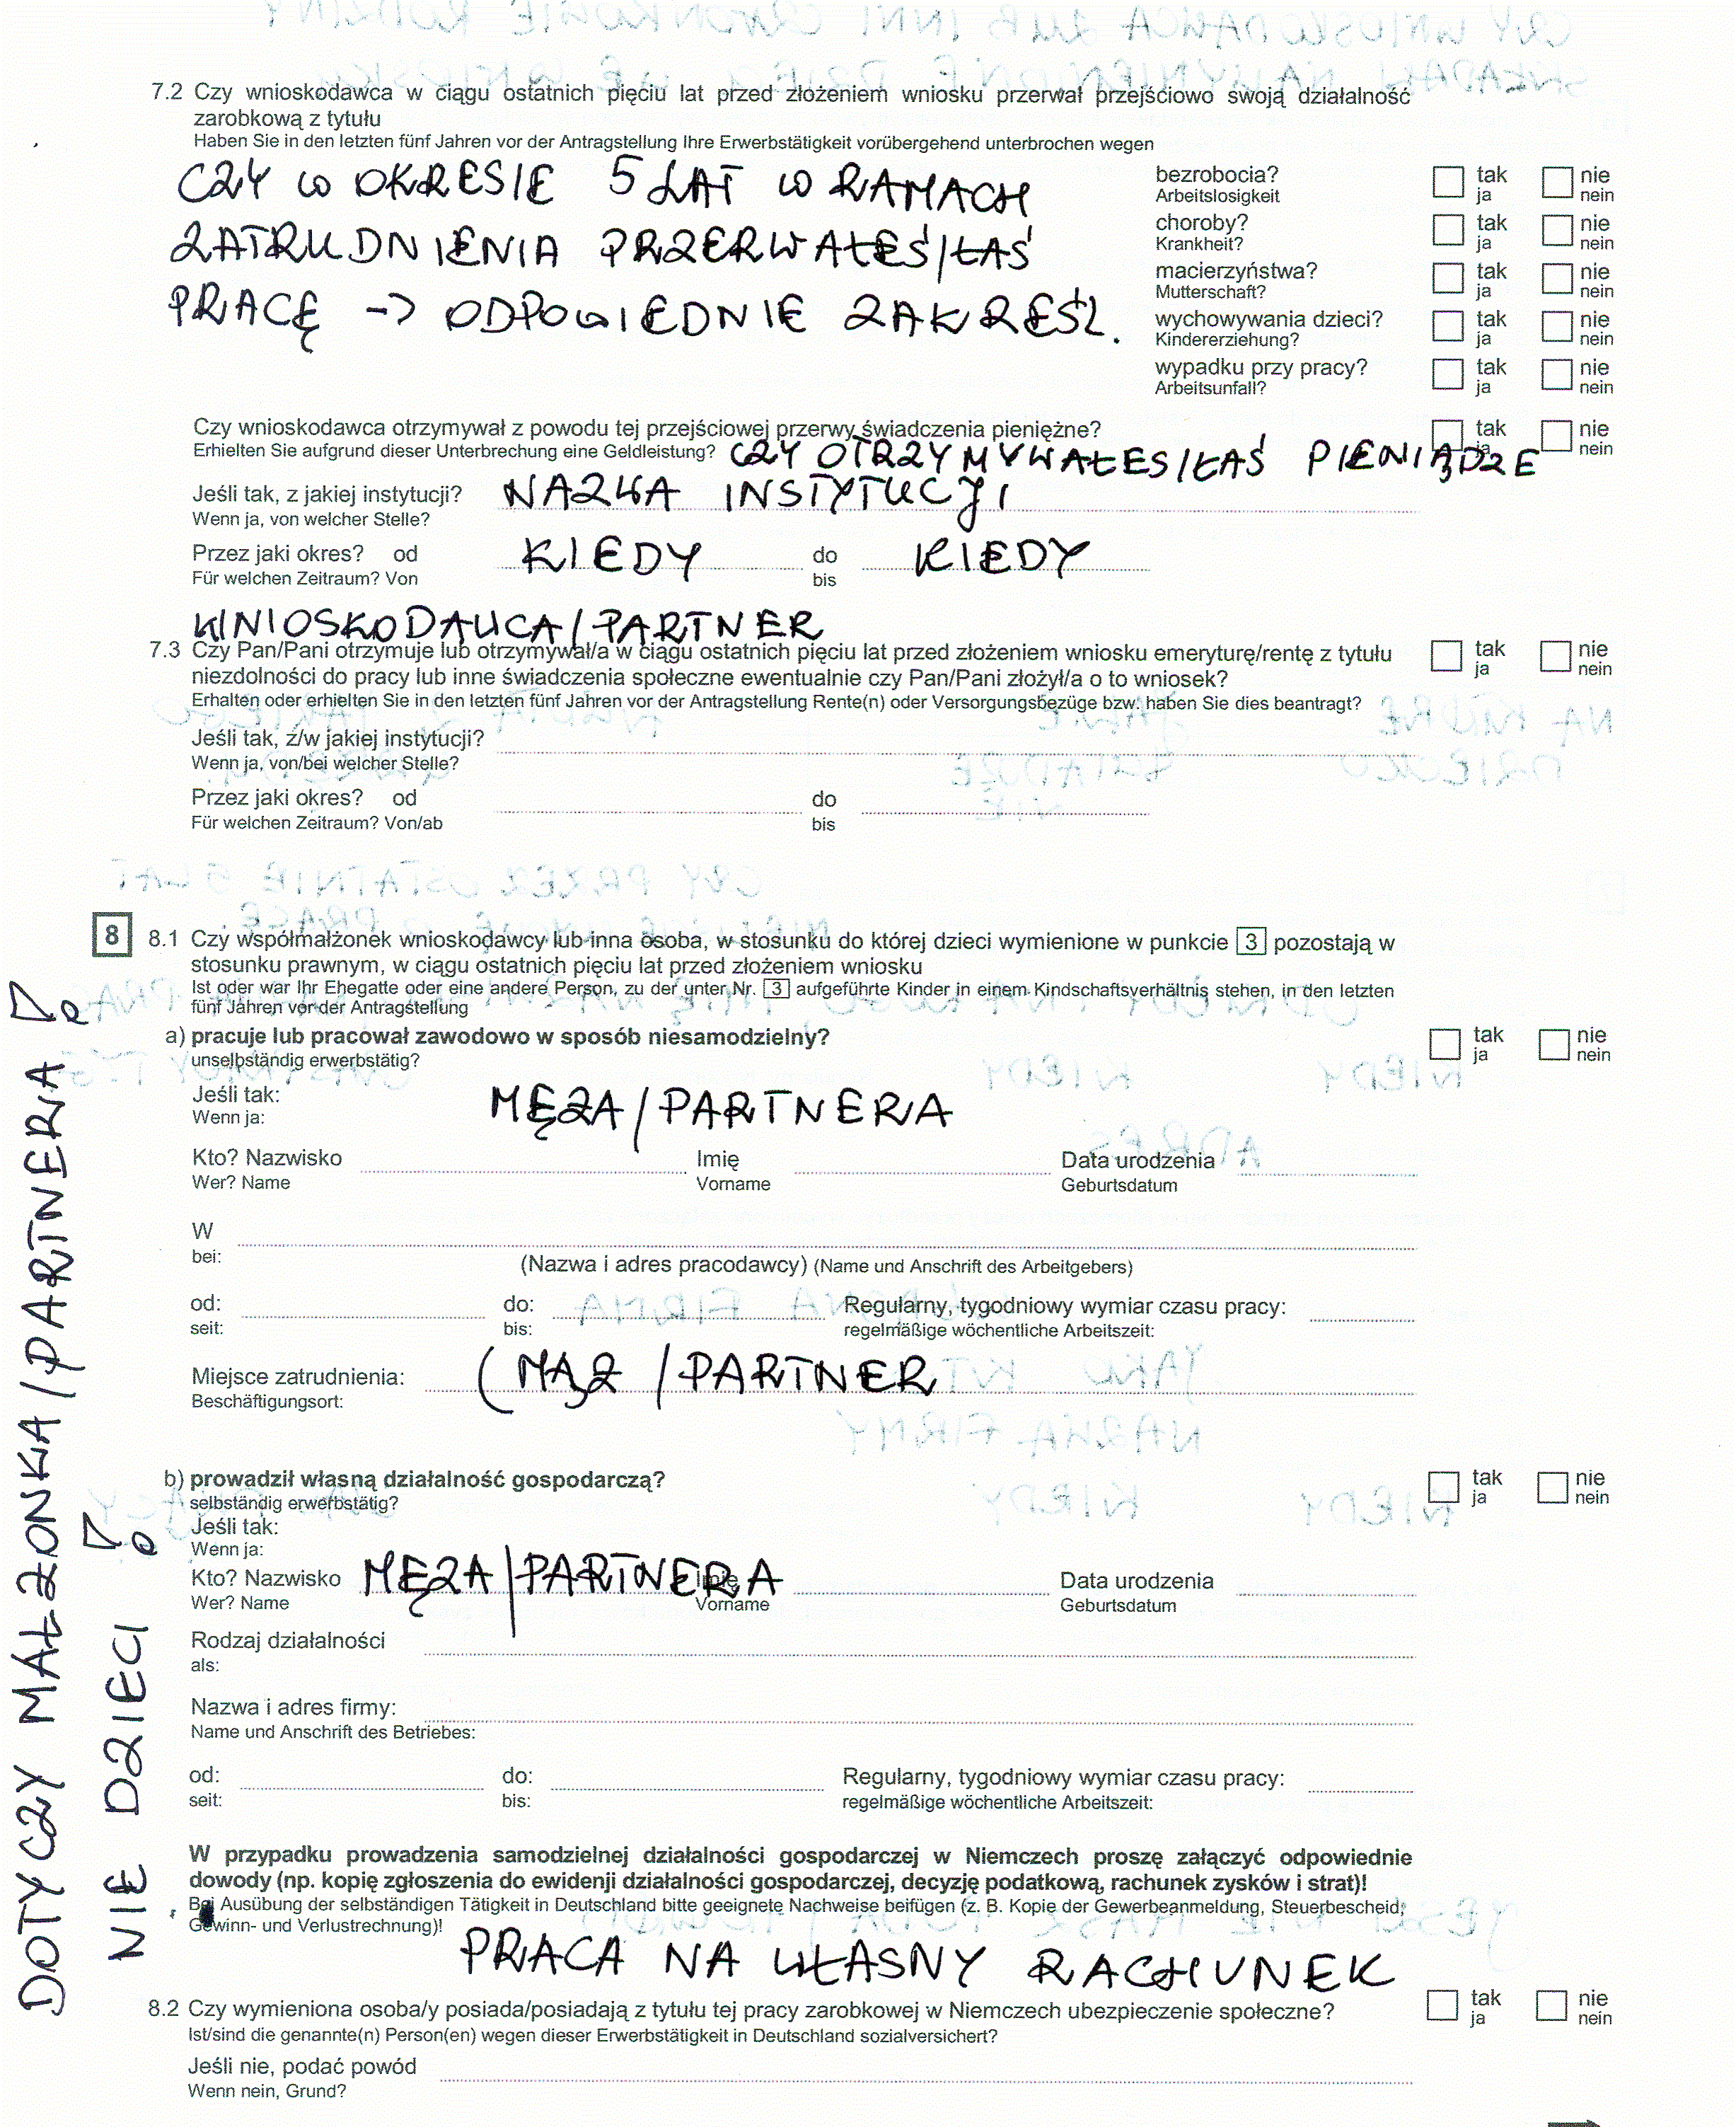 7.2 Czy wnioskodawca w ciągu ostatnich pięciu lat przed złożeniem wniosku przerwał przejściowo swoją działalność
zarobkową z tytułu
Haben Sie in den letzten fünf Jahren vor der Antragstellung Ihre Erwerbstätigkeit vorübergehend unterbrochen wegen
CZY W OKRESIE 5 LAT W RAMACH
ZATRUDNIENIA PRZERWAŁEŚ/ŁAŚ
PRACĘ -> ODPOWIEDNIE ZAKREŚL.
bezrobocia? tak nie
Arbeitslosigkeit ja nein
choroby? tak nie
Krankheit? ja nein
macierzyństwa? tak nie
Mutterschaft? ja nein
wychowywania dzieci? tak nie
Kindererziehung? ja nein
wypadku przy pracy? tak nie
Arbeitsunfall? ja nein
Czy wnioskodawca otrzymywał z powodu tej przejściowej przerwy świadczenia pieniężne? tak nie
Erhielten Sie aufgrund dieser Unterbrechung eine Geldleistung? CZY OTRZYMYWAŁEŚ/ŁAŚ PIENIĄDZE ja nein
Jeśli tak, z jakiej instytucji? NAZWA INSTYTUCJI
Wenn ja, von welcher Stelle?
Przez jaki okres? od KIEDY do KIEDY
Für welchen Zeitraum? Von bis
WNIOSKODAWCA/PARTNER
7.3 Czy Pan/Pani otrzymuje lub otrzymywał/a w ciągu ostatnich pięciu lat przed złożeniem wniosku emeryturę/rentę z tytułu tak nie
niezdolności do pracy lub inne świadczenia społeczne ewentualnie czy Pan/Pani złożył/a o to wniosek? ja nein
Erhalten oder erhielten Sie in den letzten fünf Jahren vor der Antragstellung Rente(n) oder Versorgungsbezüge bzw. haben Sie dies beantragt?
Jeśli tak, z/w jakiej instytucji?
Wenn ja, von/bei welcher Stelle?
Przez jaki okres? od do
Für welchen Zeitraum? Von/ab bis
8 8.1 Czy współmałżonek wnioskodawcy lub inna osoba, w stosunku do której dzieci wymienione w punkcie 3 pozostają w
stosunku prawnym, w ciągu ostatnich pięciu lat przed złożeniem wniosku
Ist oder war Ihr Ehegatte oder eine andere Person, zu der unter Nr. 3 aufgeführte Kinder in einem Kindschaftsverhältnis stehen, in den letzten
fünf Jahren vor der Antragstellung
a) pracuje lub pracował zawodowo w sposób niesamodzielny? tak nie
unselbständig erwerbstätig? ja nein
Jeśli tak:
Wenn ja: MĘŻA/PARTNERA
Kto? Nazwisko Imię Data urodzenia
Wer? Name Vorname Geburtsdatum
W
bei:
(Nazwa i adres pracodawcy) (Name und Anschrift des Arbeitgebers)
od: do: Regularny, tygodniowy wymiar czasu pracy:
seit: bis: regelmäßige wöchentliche Arbeitszeit:
Miejsce zatrudnienia: (MĄŻ /PARTNER
Beschäftigungsort:
b) prowadził własną działalność gospodarczą? tak nie
selbständig erwerbstätig? ja nein
Jeśli tak:
Wenn ja:
Kto? Nazwisko MĘŻA/PARTNERA Imię Data urodzenia
Wer? Name Vorname Geburtsdatum
Rodzaj działalności
als:
Nazwa i adres firmy:
Name und Anschrift des Betriebes:
od: do: Regularny, tygodniowy wymiar czasu pracy:
seit: bis: regelmäßige wöchentliche Arbeitszeit:
W przypadku prowadzenia samodzielnej działalności gospodarczej w Niemczech proszę załączyć odpowiednie
dowody (np. kopię zgłoszenia do ewidenji działalności gospodarczej, decyzję podatkową, rachunek zysków i strat)!
Bei Ausübung der selbständigen Tätigkeit in Deutschland bitte geeignete Nachweise beifügen (z. B. Kopie der Gewerbeanmeldung, Steuerbescheid,
Gewinn- und Verlustrechnung)!
PRACA NA WŁASNY RACHUNEK
8.2 Czy wymieniona osoba/y posiada/posiadają z tytułu tej pracy zarobkowej w Niemczech ubezpieczenie społeczne? tak nie
Ist/sind die genannte(n) Person(en) wegen dieser Erwerbstätigkeit in Deutschland sozialversichert? ja nein
Jeśli nie, podać powód
Wenn nein, Grund?
DOTYCZY MAŁŻONKA/PARTNERA !
NIE DZIECI !